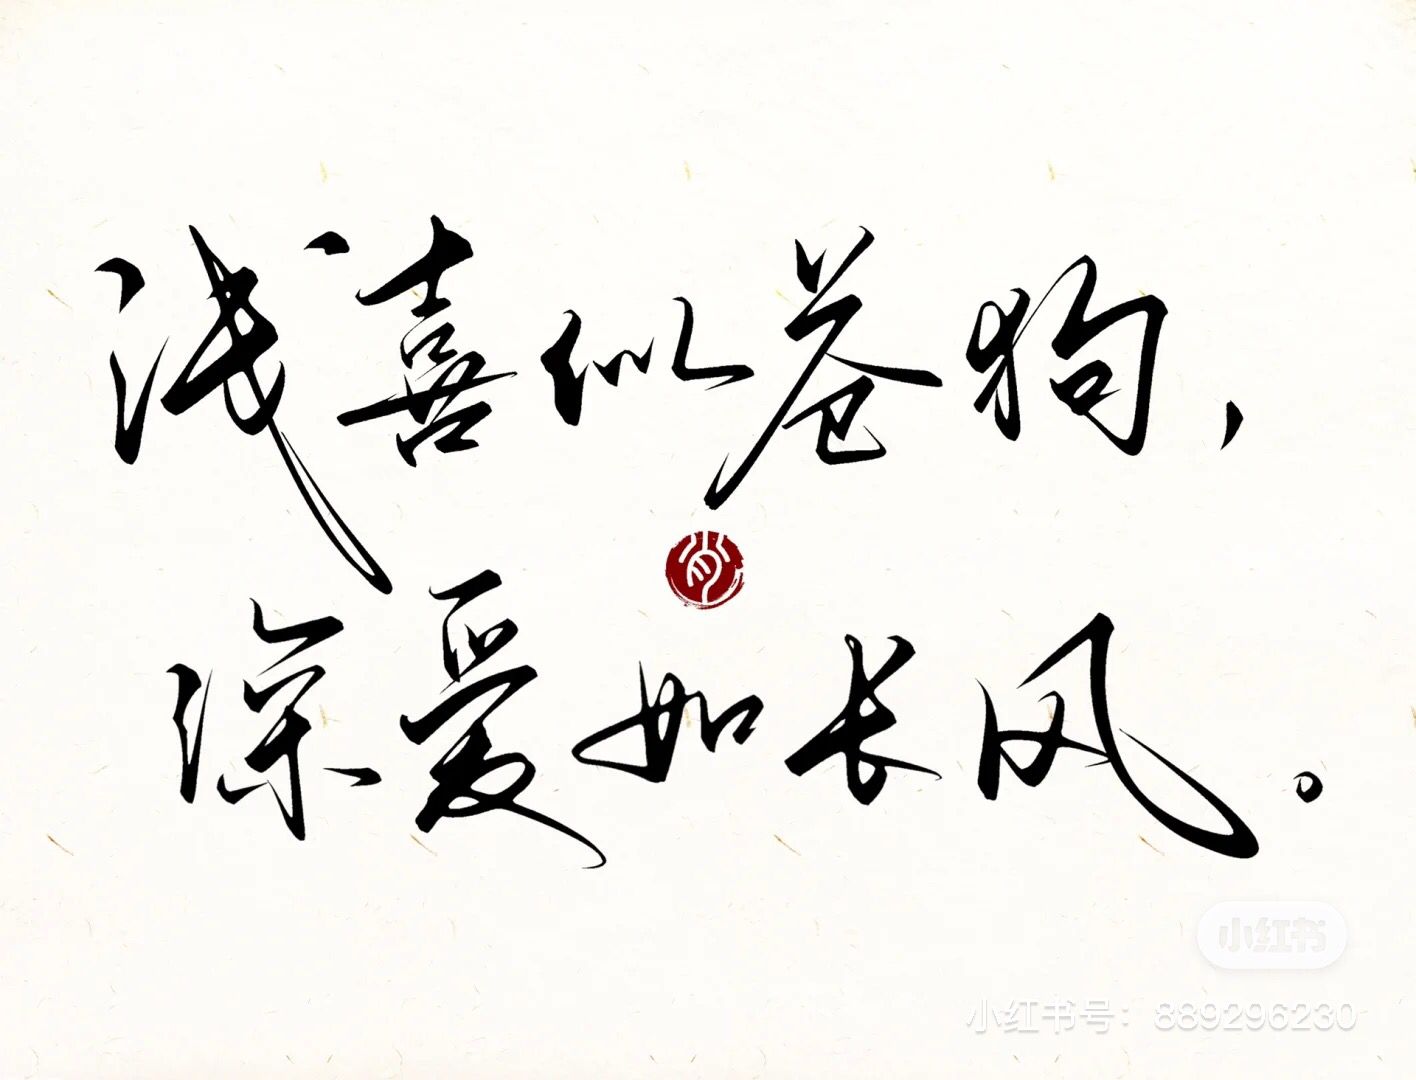 浅喜似苍狗，
深爱如长风。
小红书
小红书号：889296230